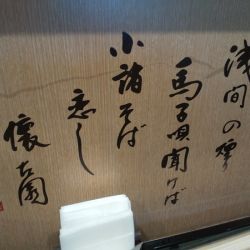 浅間の煙り
馬子唄聞けば
小諸そば
恋し
懐古園